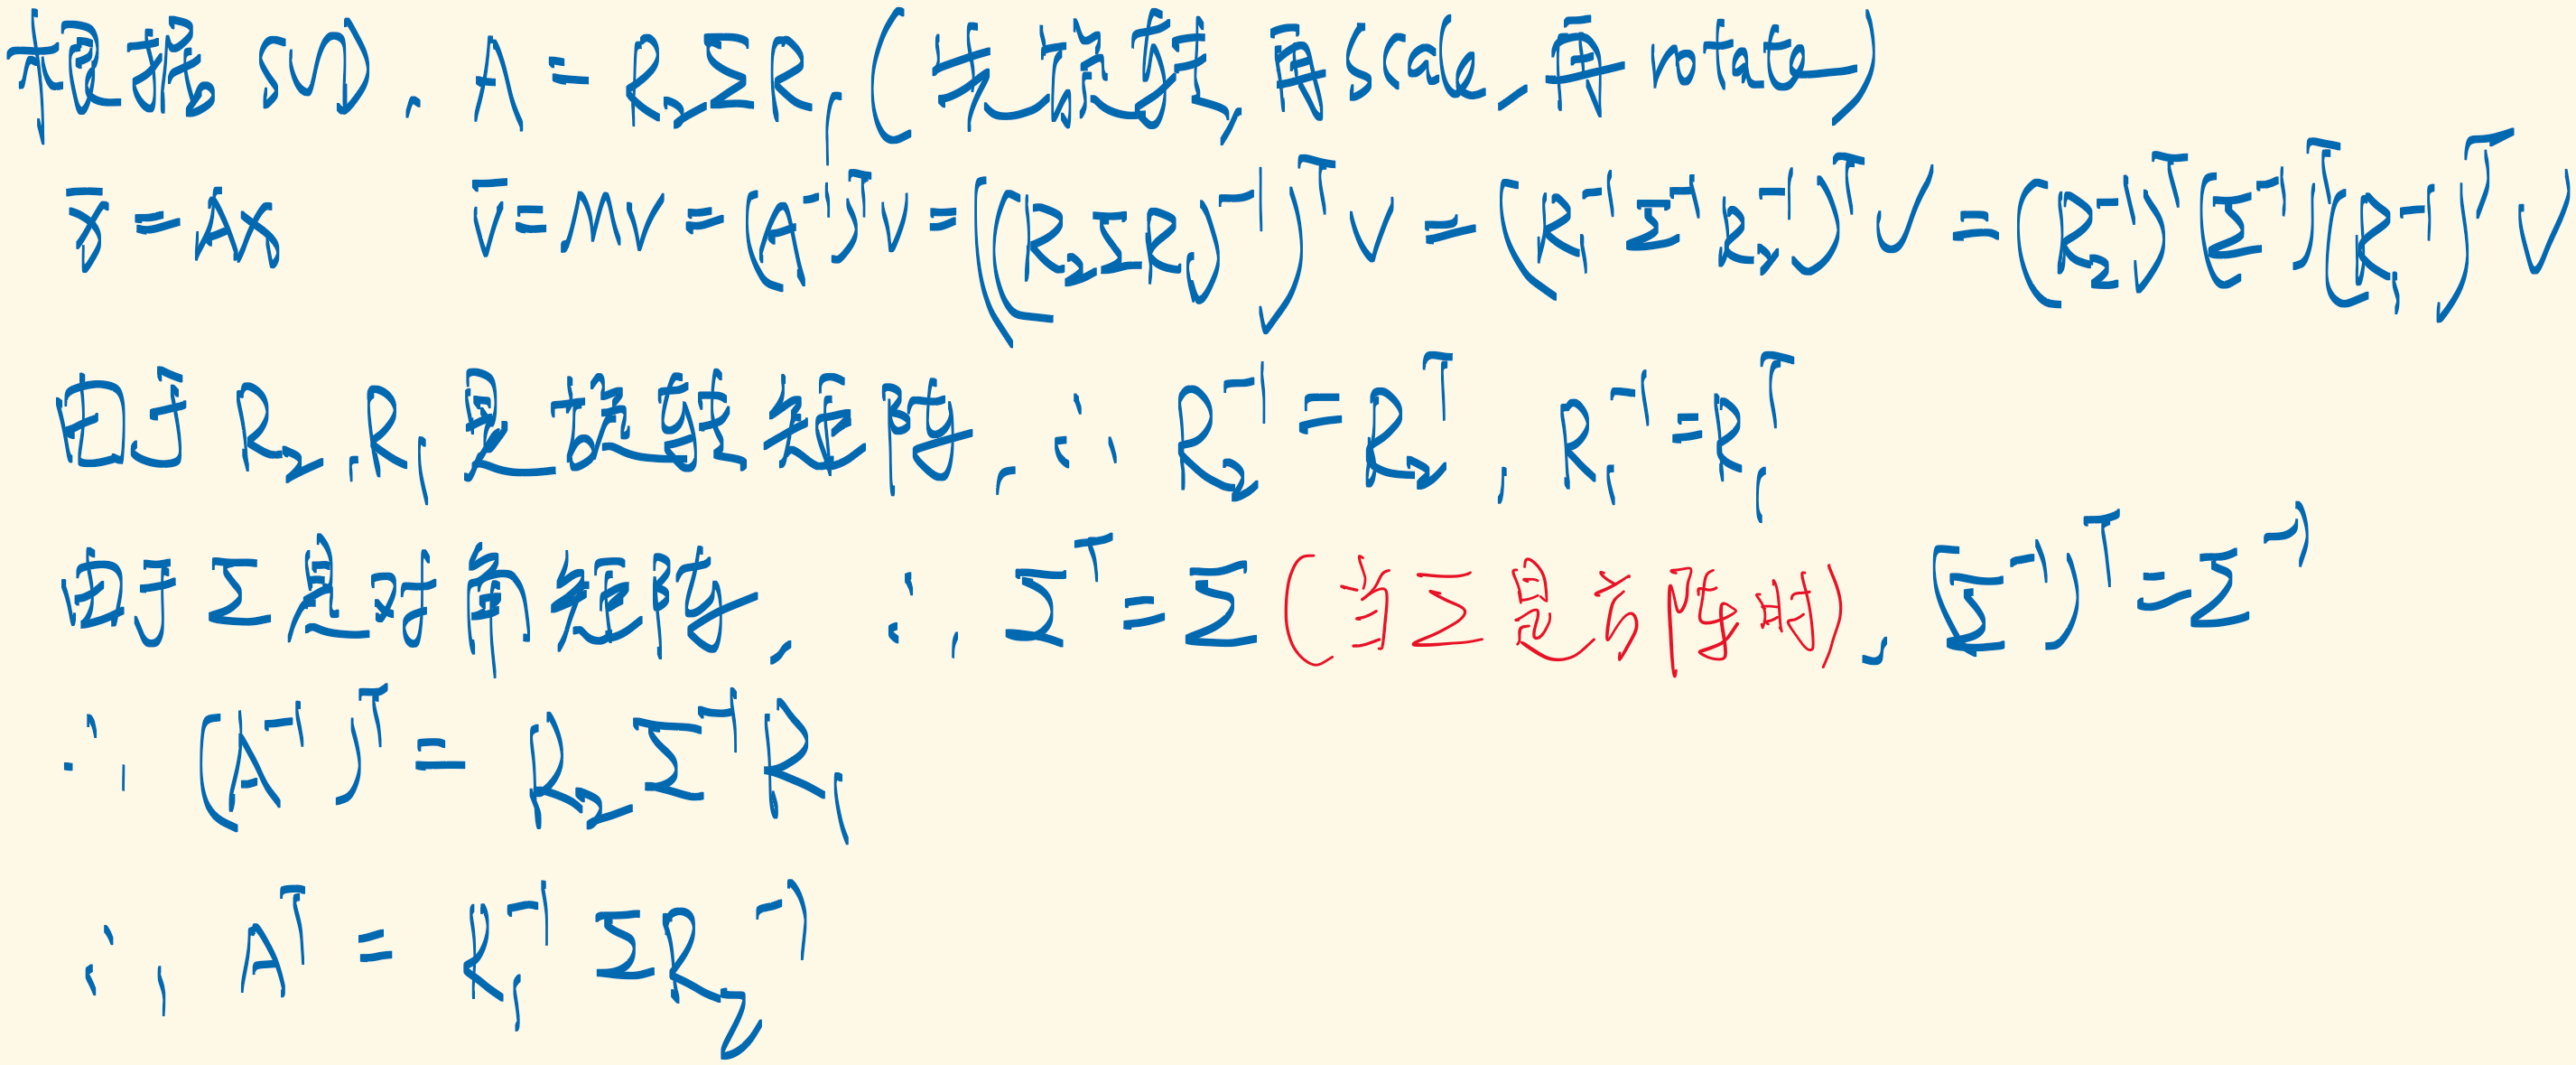 根据 SVD, A = R₂ΣR₁ (先旋转, 再scale, 再rotate)
x̄ = Ax v̄ = Mv = (A⁻¹)ᵀv = ((R₂ΣR₁)⁻¹)ᵀv = (R₁⁻¹Σ⁻¹R₂⁻¹)ᵀv = (R₂⁻¹)ᵀ(Σ⁻¹)ᵀ(R₁⁻¹)ᵀv
由于 R₂, R₁ 是旋转矩阵, ∴ R₂⁻¹ = R₂ᵀ, R₁⁻¹ = R₁ᵀ
由于 Σ是对角矩阵, ∴ Σᵀ = Σ (当Σ是方阵时), (Σ⁻¹)ᵀ = Σ⁻¹
∴ (A⁻¹)ᵀ = R₂Σ⁻¹R₁
∴ Aᵀ = R₁⁻¹ΣR₂⁻¹